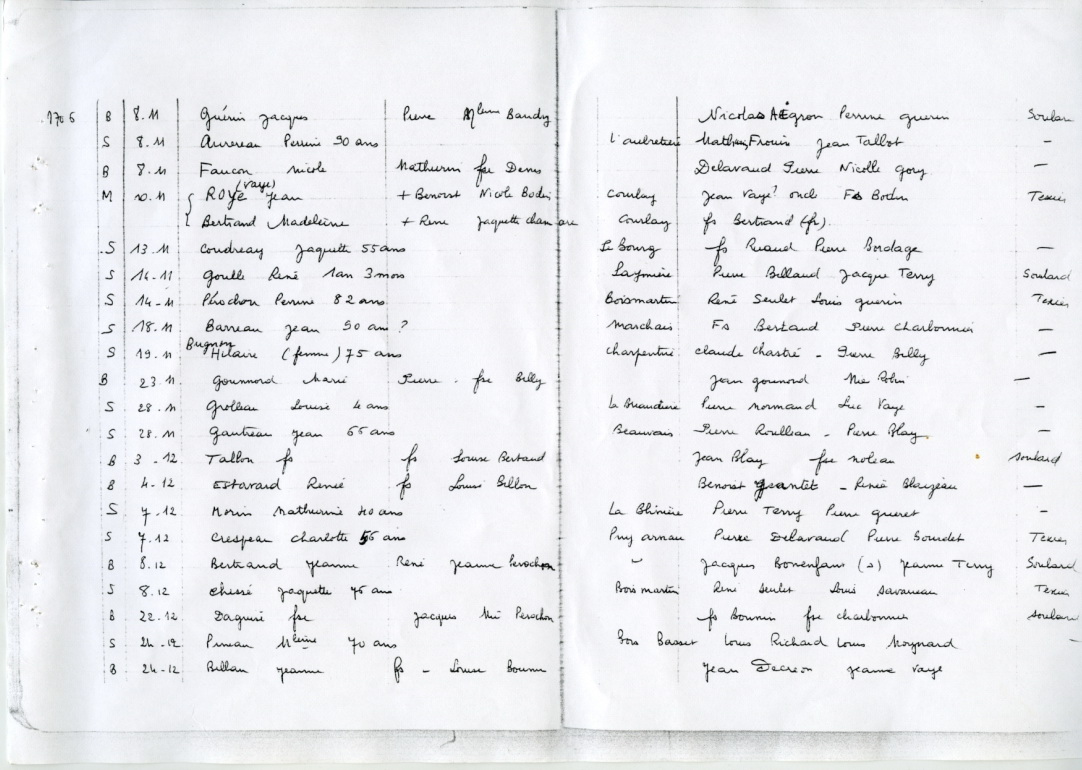 1706 B 8.11 Guérin Jacques Pierre Mleine Baudry Nicolas Aégron Perrine guerin Soulard
S 8.11 Perrine 90 ans L'aubretiere Mathieu Frouin Jean Tallot –
B 8.11 Faucon Nicole Mathurin fse Denis Delavaud Pierre Nicolle gory –
M 10.11 ROYE (Vaye) Jean + Benoist Nicole Bodin Courlay Jean Vaye? oncle Fs Bodin Texier
Bertrand Madeleine + Rene Jaquette Courlay fs Bertrand (fr).
S 13.11 Coudreay Jaquette 55 ans Le Bourg fs Ruaud Pierre Bordage –
S 14-11 Goulle René 1an 3 mois Pierre Billaud Jacque Terry Soulard
S 14-11 Phochon Perrine 82 ans Boismartin René Seulet Louis guerin Texier
S 18.11 Barreau Jean 90 ans ? Marchais Fs Bertaud Pierre Charbonnier –
S 19.11 Bugnon Hilaire (femme) 75 ans Charpentrie Claude Chastré - Pierre Billy –
B 23.11 Gounnord Marie Pierre - fse Billy Jean gounord Mie Robin –
S 28.11 Grolleau Louise 4 ans La Pierre Normand Luc Vaye –
S 28.11 Gautreau Jean 65 ans Beauvais Pierre Roulleau - Pierre Blay –
B 3-12 Tallon fs fs Louise Bertaud Jean Blay fse Moleau Soulard
B 4-12 Estavard Renée fs Louise Billon Benoist - Renée Blaizeau –
S 7.12 Morin Mathurine 40 ans La Bhinière Pierre Terry Pierre queret –
S 7.12 Crespeau Charlotte 56 ans Puy arnau Pierre Delavaud Pierre Bourdet Texier
B 8.12 Bertrand Jeanne René Jeanne Perochon " Jacques Bonenfans (s) Jeanne Terry Soulard
S 8.12 Chessé Jaquette 75 ans Bois martin René Seulet Louis Savarieau Texier
B 22.12 Daguisé fse Jacques Mie Perochon fs Bonnin fse Charbonnier Soulard
S 24-12 Pineau Mleine 70 ans bois Basset Louis Richard Louis Moynard –
B 24-12 Billau Jeanne fs - Louise Bounin Jean Decron Jeanne Vaye